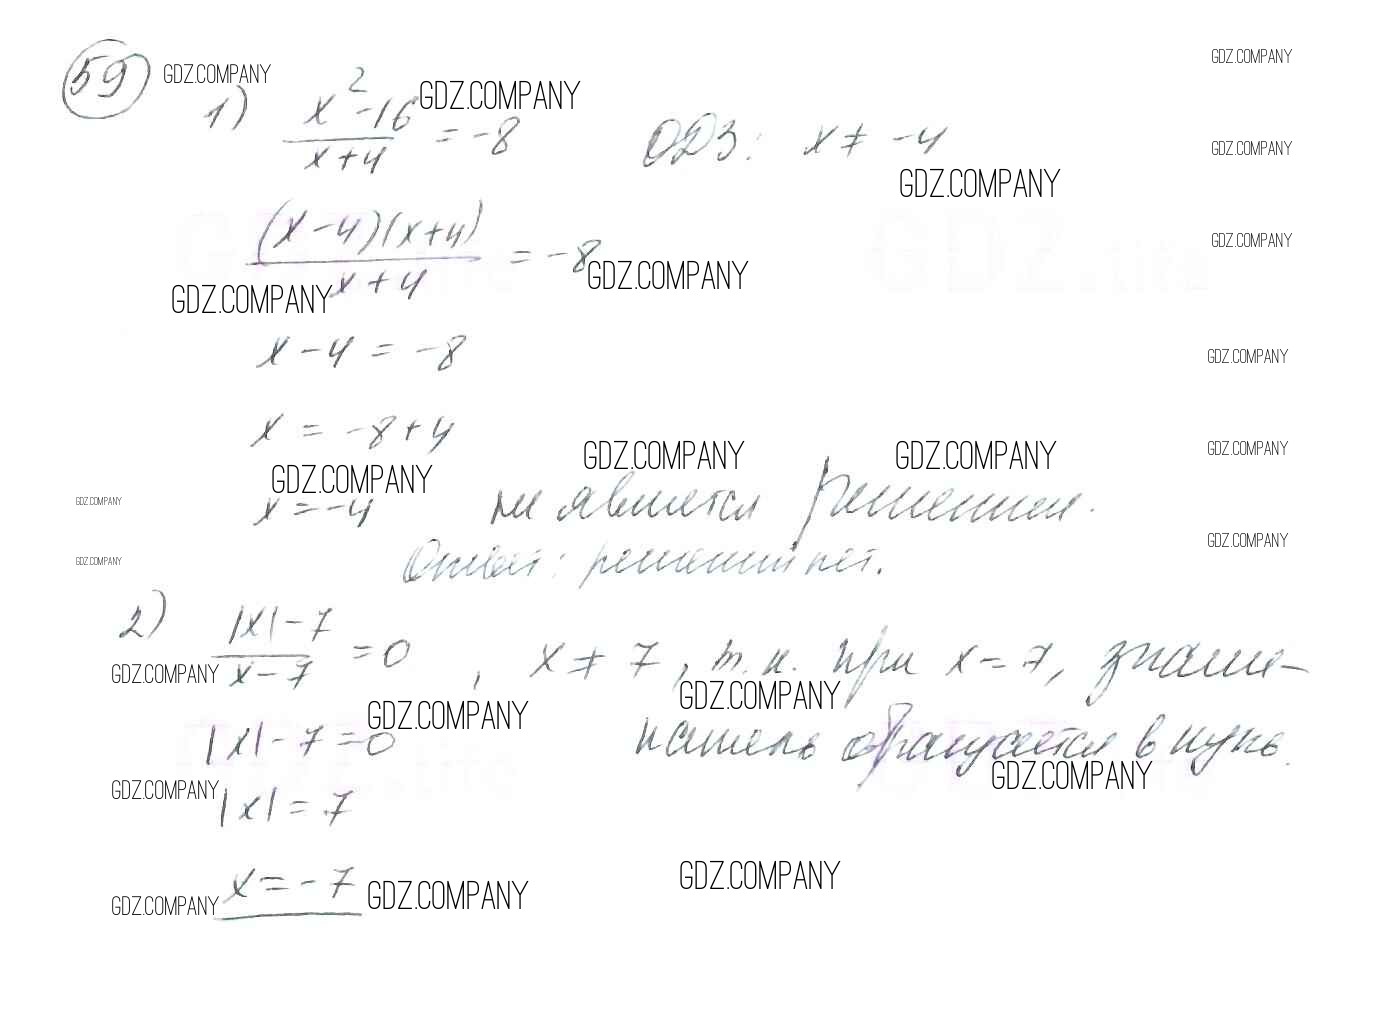 59 GDZ.COMPANY GDZ.COMPANY
1) x²-16 / x+4 = -8 ОДЗ: x ≠ -4 GDZ.COMPANY
GDZ.COMPANY
GDZ.COMPANY
(x-4)(x+4) / x+4 = -8 GDZ.COMPANY GDZ.COMPANY
GDZ.COMPANY
x-4 = -8 GDZ.COMPANY
x = -8+4
GDZ.COMPANY GDZ.COMPANY GDZ.COMPANY GDZ.COMPANY
GDZ.COMPANY x = -4 не является решением.
GDZ.COMPANY
GDZ.COMPANY Ответ: решений нет.
2) |x|-7 / x-7 = 0, x ≠ 7, т.к. при x=7, знаме-
GDZ.COMPANY GDZ.COMPANY GDZ.COMPANY
|x|-7=0 натель обращается в нуль.
GDZ.COMPANY GDZ.COMPANY
|x| = 7
x = -7 GDZ.COMPANY GDZ.COMPANY
GDZ.COMPANY